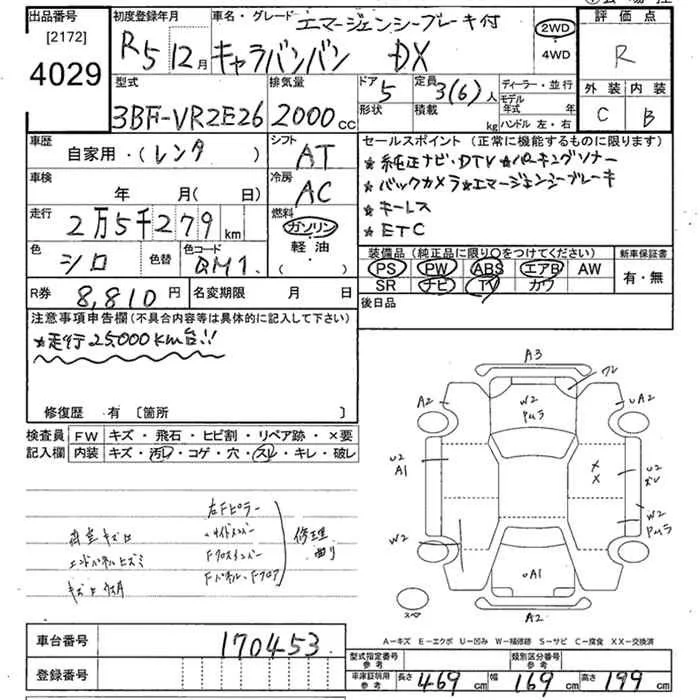 出品番号
[2172]
4029
初度登録年月
R5 12月
車名・グレード エマージェンシーブレーキ付
キャラバンバン DX
2WD
・
4WD
評価点
R
外装 内装
C B
型式
3BF-VR2E26
排気量
2000cc
ドア 5
形状
定員 3(6)人
積載 kg
ディーラー・並行
モデル年式 年
ハンドル 左・右
車歴
自家用・(レンタ )
シフト
AT
車検
年 月(日)
冷房
AC
走行
2万5千279km
燃料
ガソリン
・
軽・油
・( )
色
シロ
色替
色コード
QM1.
セールスポイント (正常に機能するものに限ります)
★純正ナビ・DTV ★パーキングソナー
★バックカメラ ★エマージェンシーブレーキ
★キーレス
★ETC
装備品 (純正品に限り○をつけてください)
PS PW ABS エアB AW
SR ナビ TV カワ
新車保証書
有・無
R券 8,810円
名変期限 月 日
後日品
注意事項申告欄(不具合内容等は具体的に記入して下さい)
★走行25,000km台!!
修復歴 有 〔箇所 〕
検査員
記入欄
FW キズ・飛石・ヒビ割・リペア跡・×要
内装 キズ・汚レ・コゲ・穴・スレ・キレ・破レ
左Fピラー
サイドメンバー
Fクロスメンバー
Fパネル・Fフロア
修理
曲り
エンドパネルヒズミ
A3
ワレ
A2
W2
Pムラ
UA2
U2
A1
X
X
U2
ズレ
W2
Pムラ
W2
UA1
スペア
A2
A−キズ E−エクボ U−凹み W−補修跡 S−サビ C−腐食 XX−交換済
車台番号 170453
登録番号
型式指定番号
参考
類別区分番号
参考
車庫証明用
参考
長さ 469cm 幅 169cm 高さ 199cm